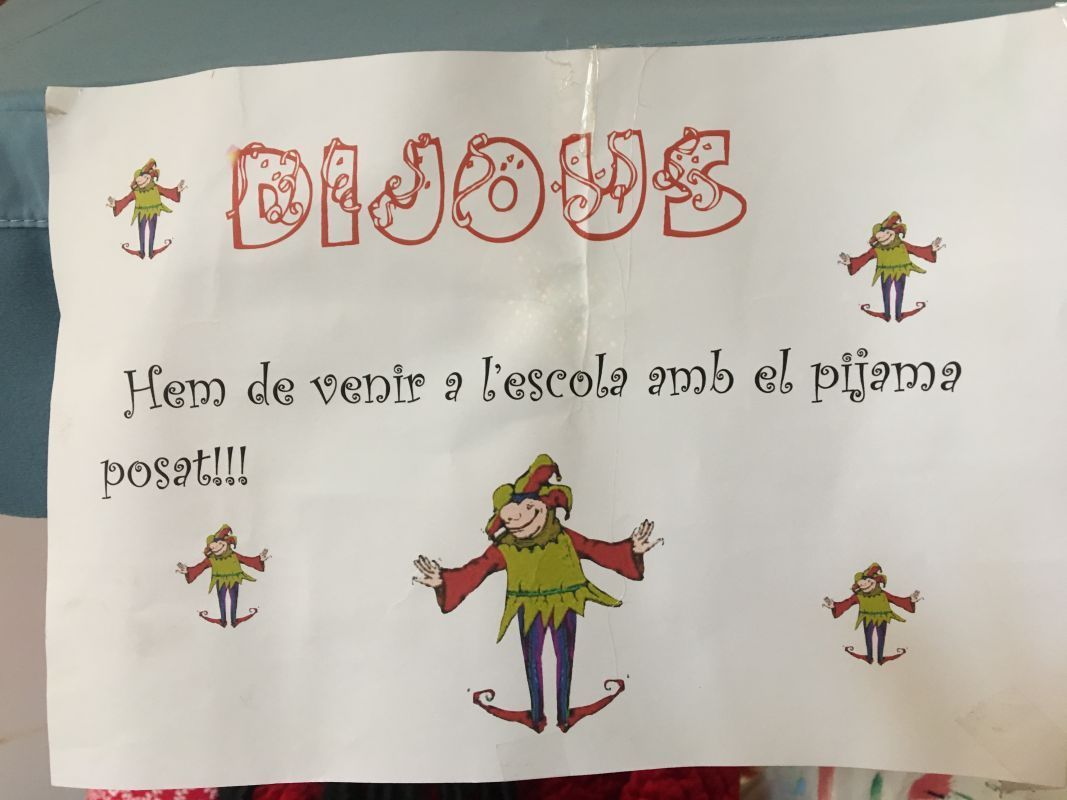 DIJOUS
Hem de venir a l'escola amb el pijama
posat!!!